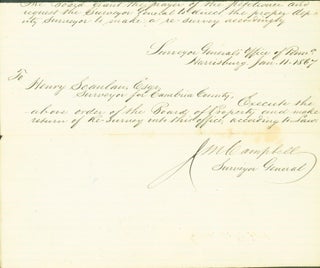 The Board grant the prayer of the petitioner and
request the Surveyor General to direct the proper Dep-
uty Surveyor to make a re-survey accordingly
Surveyor General's Office of Penna
Harrisburg Jan. 11. 1867
To
Henry Scanlan, Esqr
Surveyor for Cambria County, Execute the
above order of the Board of Property and make
return of Re-Survey into this office, according to Law.
J M Campbell
Surveyor General